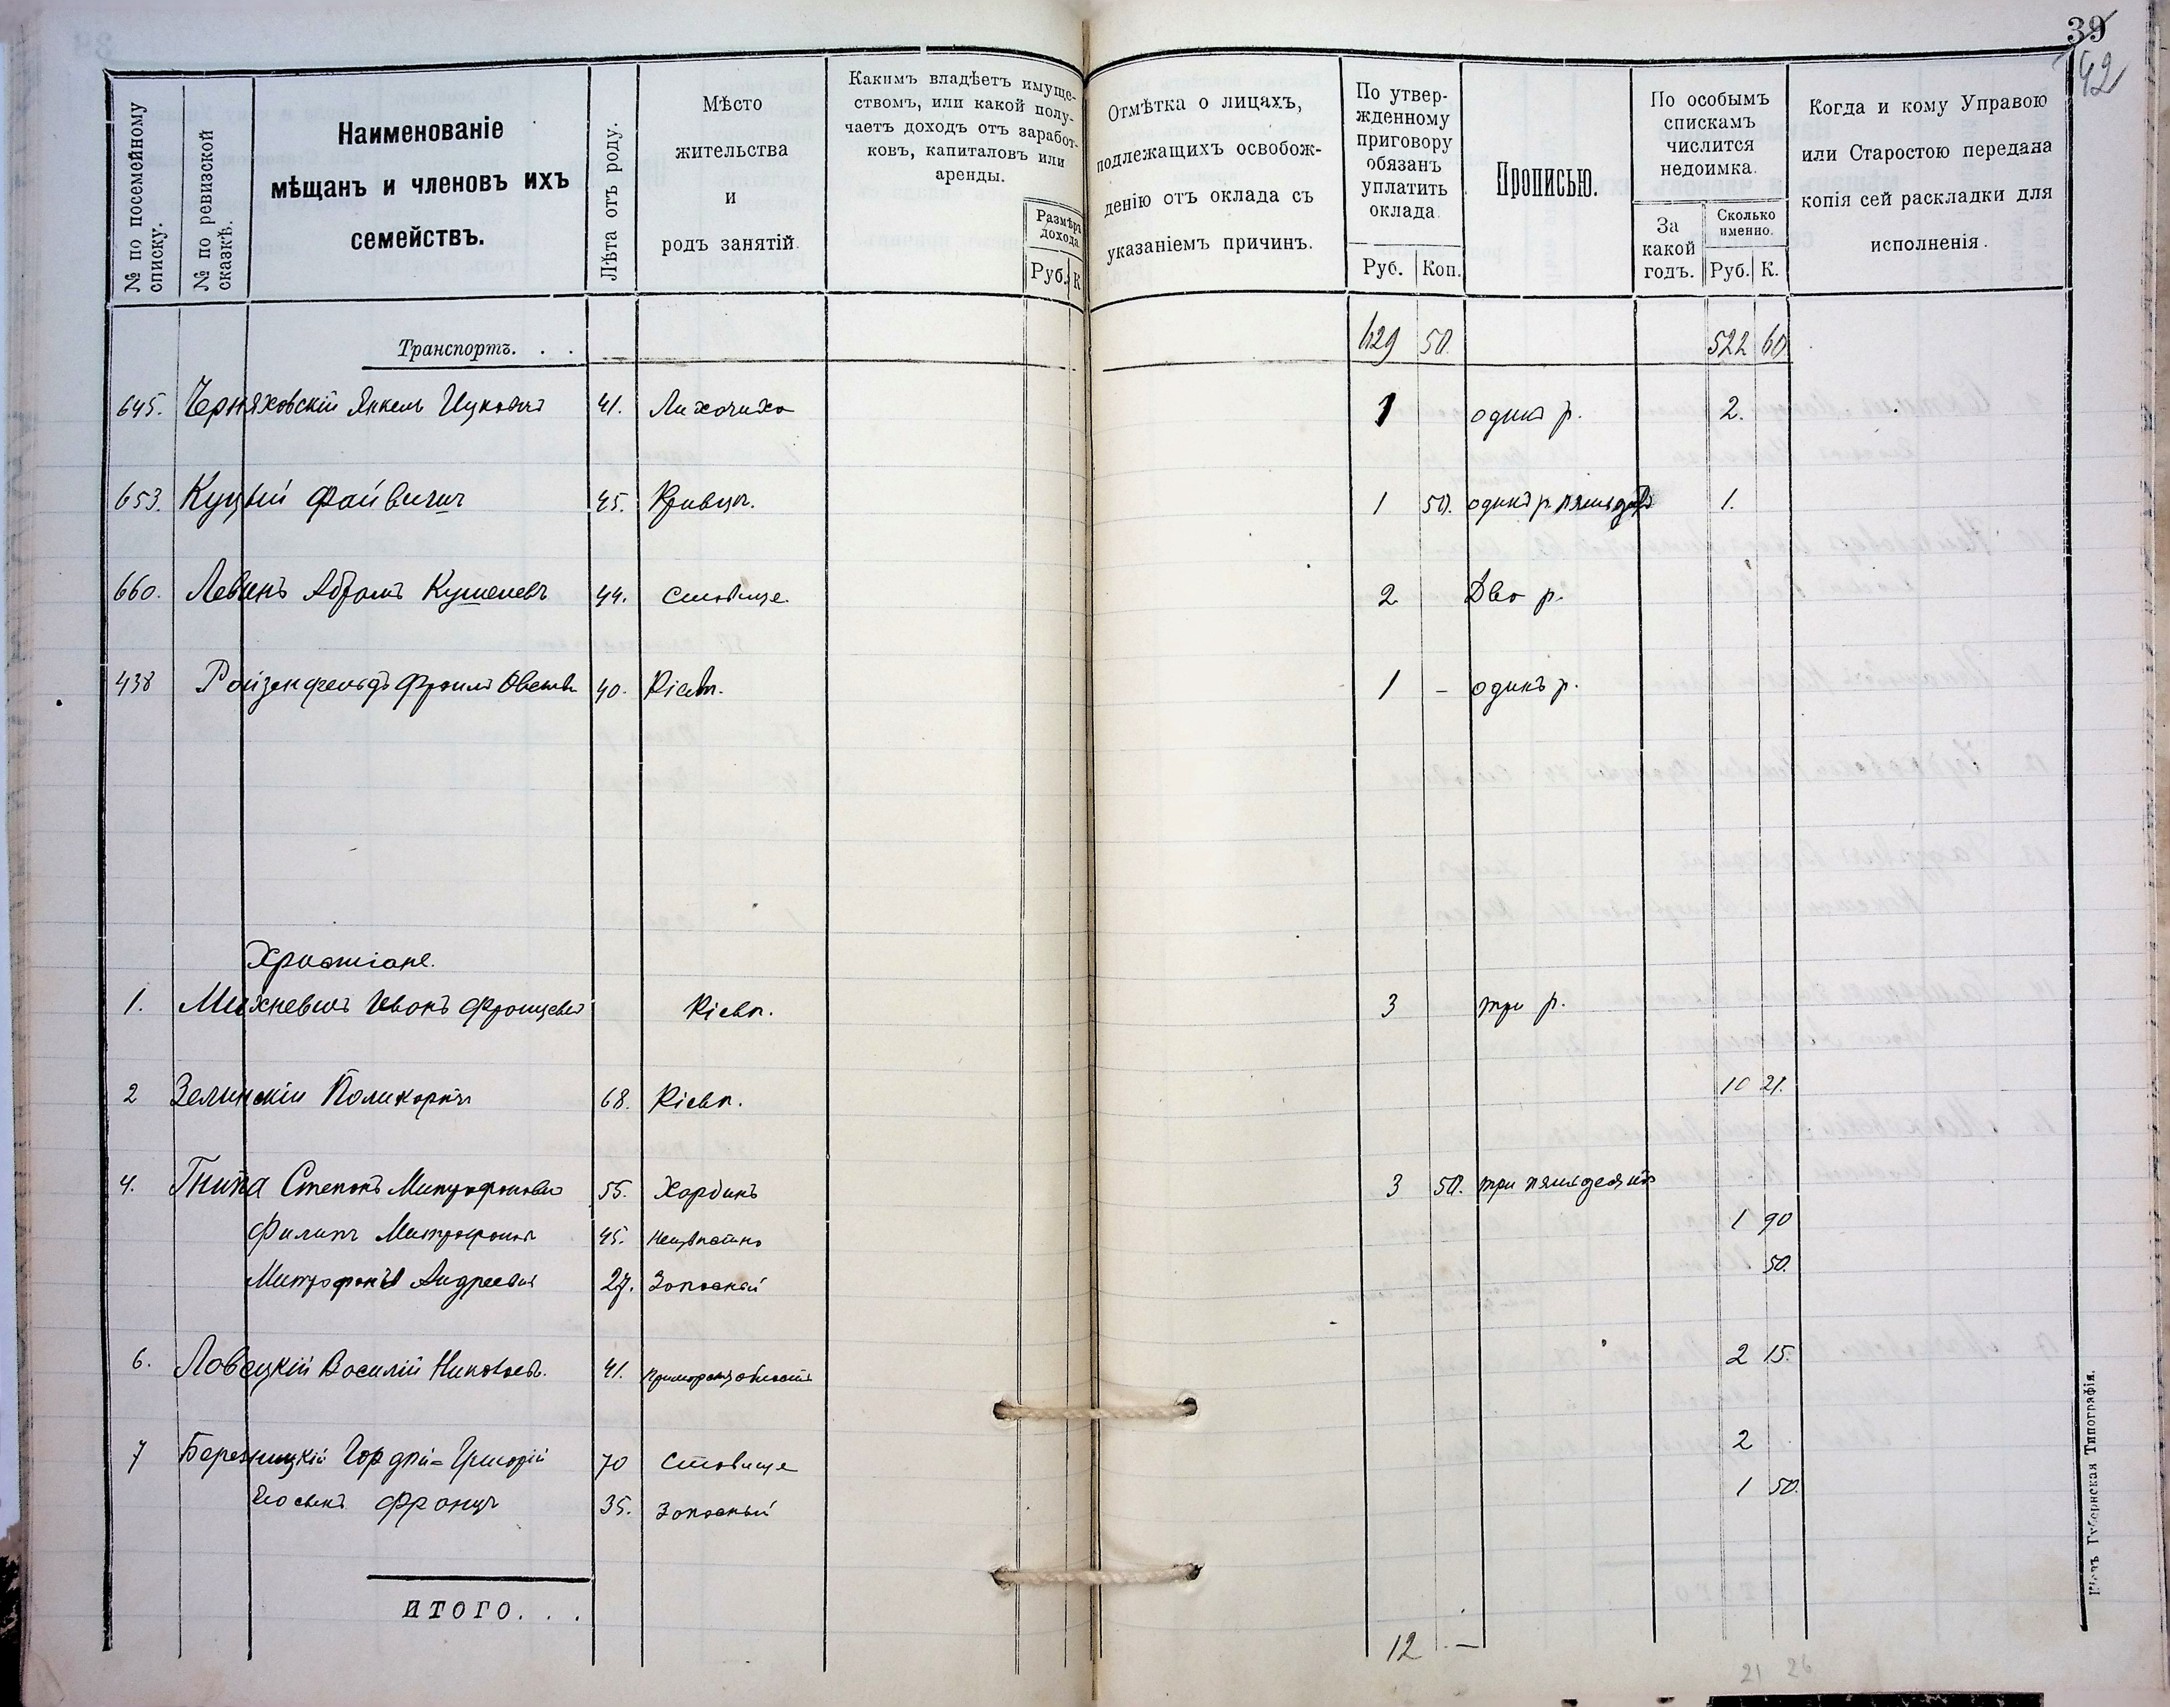 39
42
№ по посемейному списку.
№ по ревизской сказкѣ.
Наименованіе мѣщанъ и членовъ ихъ семействъ.
Лѣта отъ роду.
Мѣсто жительства и родъ занятій.
Какимъ владѣетъ имуще-
ствомъ, или какой полу-
чаетъ доходъ отъ заработ-
ковъ, капиталовъ или
аренды.
Размѣръ дохода.
Руб. К
Отмѣтка о лицахъ,
подлежащихъ освобож-
денію отъ оклада съ
указаніемъ причинъ.
По утвер-
жденному
приговору
обязанъ
уплатить
оклада.
Руб. Коп.
Прописью.
По особымъ
спискамъ
числится
недоимка.
За какой годъ.
Сколько именно.
Руб. К.
Когда и кому Управою
или Старостою передана
копія сей раскладки для
исполненія.
Транспортъ. . . 429 50. 522 60
645. Черняховскій Янкель Ицковичъ 41. Лихачиха 1 одинъ р. 2.
653. Куцый Файвишъ 45. Кривец. 1 50. одинъ р. пятьдес 1.
660. Левинъ Абрамъ Кушелевъ 44. Ставище 2 Два р.
438 Ройзенфельдъ Фроимъ 40. Кіевъ. 1 - одинъ р.
Христіане.
1. Михневичъ Иванъ Францевичъ Кіевъ. 3 три р.
2 Зелинскій Поликарпъ 68. Кіевъ. 10 21.
4. Гнипа Степанъ Митрофановъ 55. Харбинъ 3 50. три пятьдесятъ
Филипъ Митрофановъ 45. Неизвѣстно 1 90
Митрофанъ Андреевъ 27. Запасный 50.
6. Ловецкій Василій Николаевъ. 41. Приморск. область 2 15.
7 Березницкій Гордій-Григорій 70 Ставище 2
Іосифъ Францъ 35. Запасный 1 50.
ИТОГО. . . 12 -
21 26
Кіевъ Губернская Типографія.